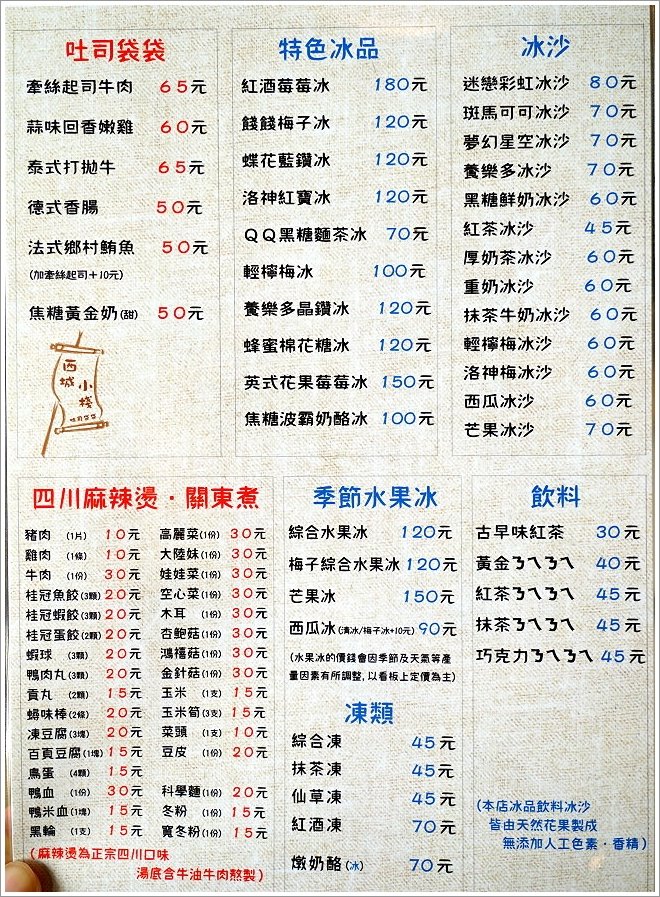 吐司袋袋
牽絲起司牛肉 65元
蒜味回香嫩雞 60元
泰式打拋牛 65元
德式香腸 50元
法式鄉村鮪魚 50元
(加牽絲起司+10元)
焦糖黃金奶(甜) 50元
西城小棧
吐司袋袋
特色冰品
紅酒莓莓冰 180元
餞餞梅子冰 120元
蝶花藍鑽冰 120元
洛神紅寶冰 120元
QQ黑糖麵茶冰 70元
輕檸梅冰 100元
養樂多晶鑽冰 120元
蜂蜜棉花糖冰 120元
英式花果莓莓冰 150元
焦糖波霸奶酪冰 100元
冰沙
迷戀彩虹冰沙 80元
斑馬可可冰沙 70元
夢幻星空冰沙 70元
養樂多冰沙 70元
黑糖鮮奶冰沙 60元
紅茶冰沙 45元
厚奶茶冰沙 60元
重奶冰沙 60元
抹茶牛奶冰沙 60元
輕檸梅冰沙 60元
洛神梅冰沙 60元
西瓜冰沙 60元
芒果冰沙 70元
四川麻辣燙·關東煮
豬肉 (1片) 10元
雞肉 (1條) 10元
牛肉 (1份) 30元
桂冠魚餃(3顆) 20元
桂冠蝦餃(3顆) 20元
桂冠蛋餃(2顆) 20元
蝦球 (3顆) 20元
鴨肉丸(3顆) 20元
貢丸 (2顆) 15元
蟳味棒(2條) 20元
凍豆腐(3塊) 20元
百頁豆腐(1塊) 15元
鳥蛋 (4顆) 15元
鴨血 (1份) 30元
鴨米血(1塊) 15元
黑輪 (1支) 15元
高麗菜(1份) 30元
大陸妹(1份) 30元
娃娃菜(1份) 30元
空心菜(1份) 30元
木耳 (1份) 30元
杏鮑菇(1份) 30元
鴻禧菇(1份) 30元
金針菇(1份) 30元
玉米 (1支) 15元
玉米筍(3支) 15元
菜頭 (1支) 10元
豆皮 (1份) 20元
科學麵(1份) 20元
冬粉 (1份) 15元
寬冬粉(1份) 15元
(麻辣燙為正宗四川口味
湯底含牛油牛肉熬製)
季節水果冰
綜合水果冰 120元
梅子綜合水果冰 120元
芒果冰 150元
西瓜冰(清冰/梅子冰+10元) 90元
(水果冰的價錢會因季節及天氣等產
量因素有所調整,以看板上定價為主)
凍類
綜合凍 45元
抹茶凍 45元
仙草凍 45元
紅酒凍 70元
燉奶酪(冰) 70元
飲料
古早味紅茶 30元
黃金ㄋㄟㄋㄟ 40元
紅茶ㄋㄟㄋㄟ 45元
抹茶ㄋㄟㄋㄟ 45元
巧克力ㄋㄟㄋㄟ 45元
(本店冰品飲料冰沙
皆由天然花果製成
無添加人工色素·香精)